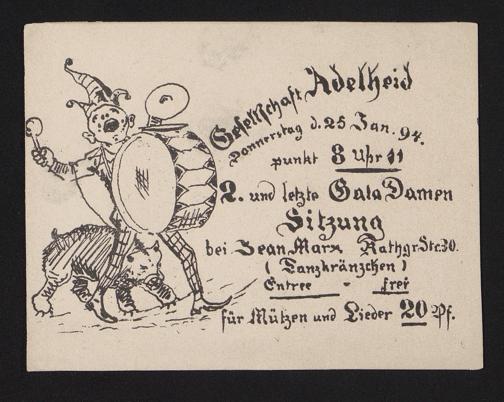 Gesellschaft Adelheid
Donnerstag d. 25 Jan. 94.
punkt 8 Uhr 11
2. und letzte Gala Damen
Sitzung
bei Jean Marx Rathgr. Str. 30.
( Tanzkränzchen )
Entree - frei
für Mützen und Lieder 20 Pf.